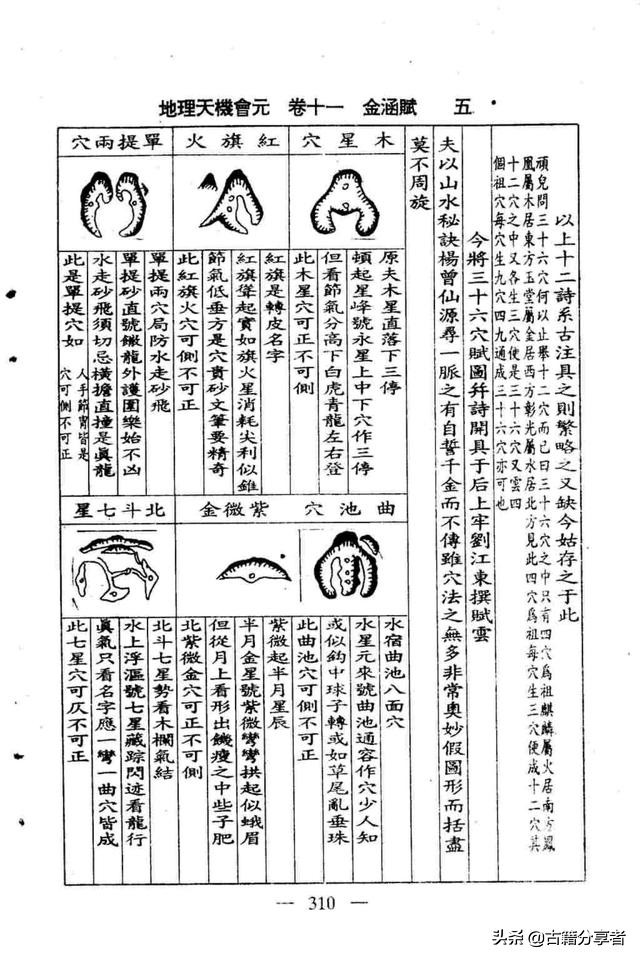 地理天機會元　卷十一　金涵賦　五
以上十二詩系古注具之則繁略之又缺今姑存之于此
頑兒問三十六穴何以止舉十二穴而已曰三十六穴之中只有四穴爲祖麒麟屬火居南方鳳
凰屬木居東方玉堂屬金居西方彰光屬水居北方見此四穴爲祖每穴生三穴便成十二穴其
十二穴之中又各生三穴便是三十六穴又雲四
個祖穴每穴生九穴四九通成三十六穴亦可也
今將三十六穴賦圖并詩開具于后上牢劉江東撰賦雲
夫以山水秘訣楊曾仙源尋一脈之有自誓千金而不傳雖穴法之無多非常奧妙假圖形而括盡
莫不周旋
木星穴
原夫木星直落下三停
頓起星峰號永星上中下穴作三停
但看節氣分高下白虎青龍左右登
此木星穴可正不可側
紅旗火
紅旗是轉皮名字
紅旗聳起實如旗火星消耗尖利似錐
節氣低垂方是穴貴砂文筆要精奇
此紅旗火穴可側不可正
單提兩穴
單提兩穴局防水走砂飛
單提砂直號鐵龍外護圍樂始不凶
水走砂飛須切忌橫擔直撞是眞龍
此是單提穴如
人手節窩皆是
穴可側不可正
曲池穴
水宿曲池八面穴
水星元來號曲池通容作穴少人知
或似鈎中球子轉或如草尾亂垂珠
此曲池穴可側不可正
紫微金
紫微起半月星辰
半月金星號紫微彎彎拱起似蛾眉
但從月上看形出饑瘦之中些子肥
北紫微金穴可正不可側
北斗七星
北斗七星勢看木欄氣結
水上浮漚號七星藏踪閃迹看龍行
眞氣只看名字應一彎一曲穴皆成
此七星穴可仄不可正
— 310 —
头条 @古籍分享者